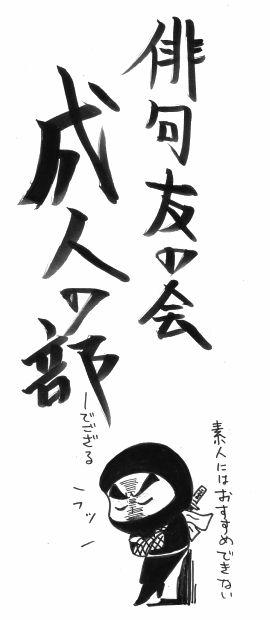 俳句友の会
成人の部
ーでござる
素人にはおすすめできない
フッ